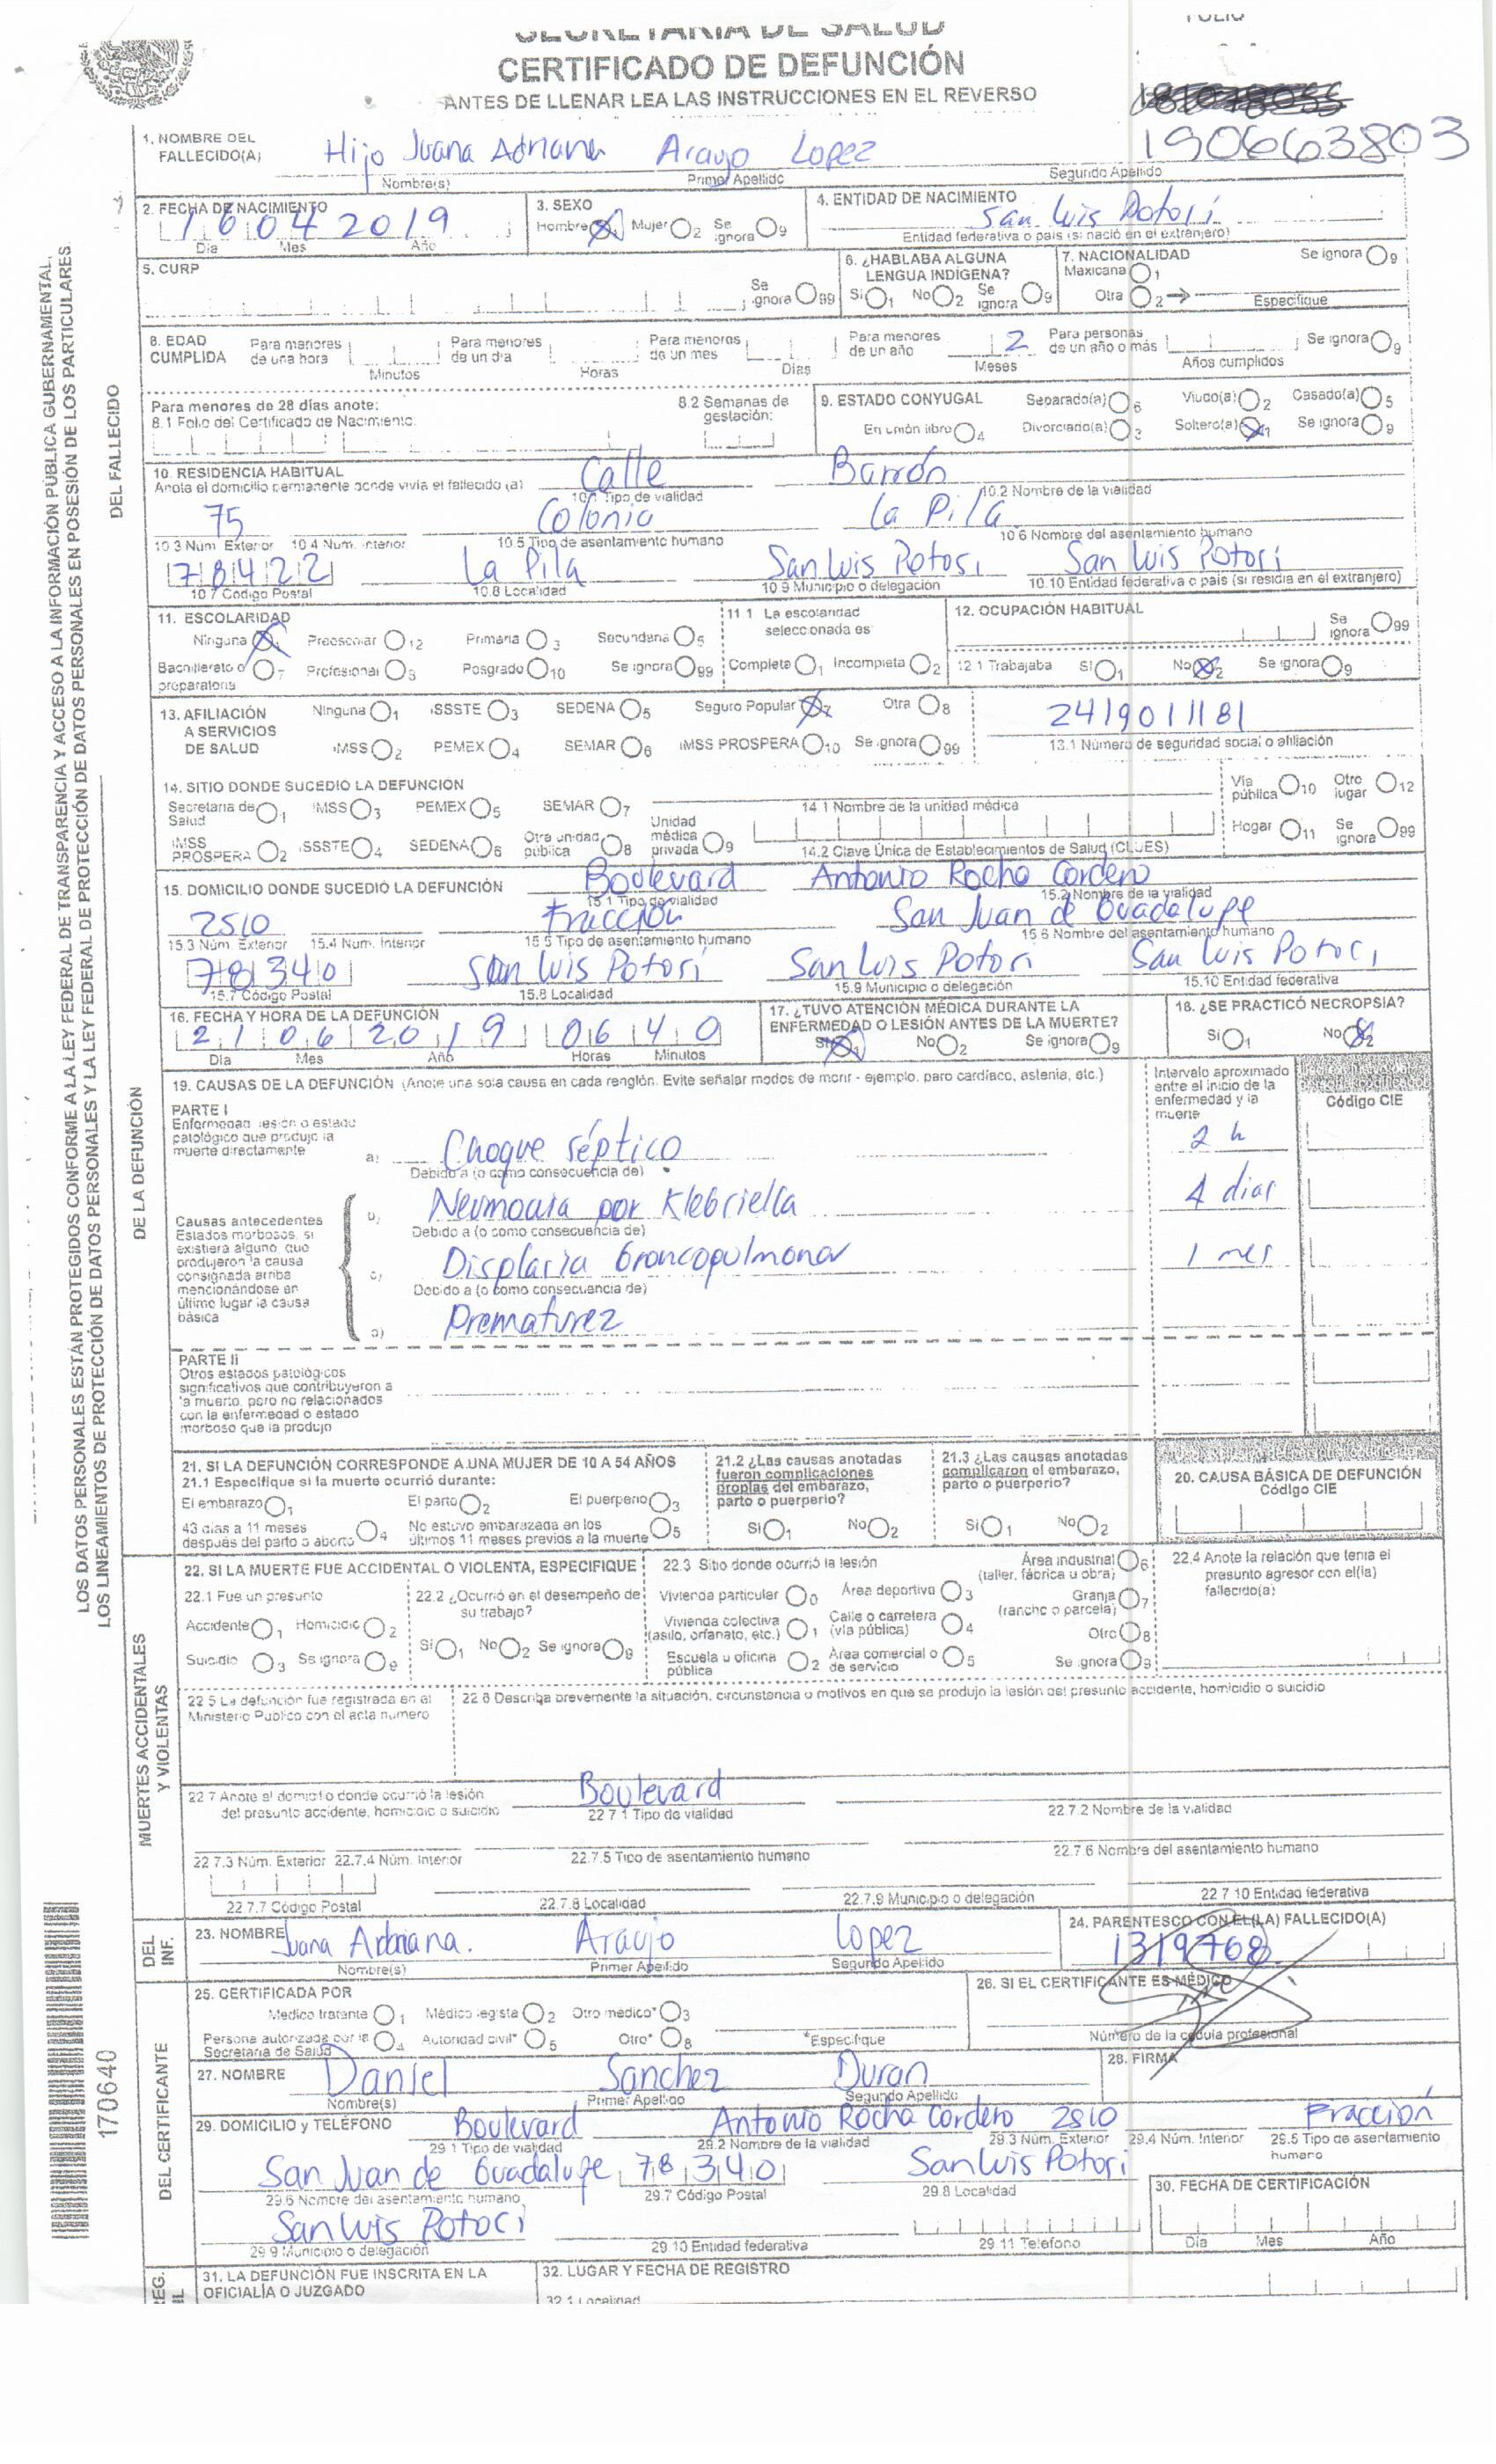 SECRETARIA DE SALUD
FOLIO
CERTIFICADO DE DEFUNCIÓN
ANTES DE LLENAR LEA LAS INSTRUCCIONES EN EL REVERSO
190663803
1. NOMBRE DEL FALLECIDO(A) Hijo Juana Adriana Araujo Lopez
Nombre(s) Primer Apellido Segundo Apellido
2. FECHA DE NACIMIENTO 16 04 2019 3. SEXO Hombre 1 Mujer 2 Se ignora 9 4. ENTIDAD DE NACIMIENTO San Luis Potosí
Dia Mes Año Entidad federativa o país (si nació en el extranjero)
5. CURP Se ignora 99 6. ¿HABLABA ALGUNA LENGUA INDÍGENA? Sí 1 No 2 Se ignora 9 7. NACIONALIDAD Mexicana 1 Otra 2 Especifique Se ignora 9
8. EDAD CUMPLIDA Para menores de una hora Minutos Para menores de un día Horas Para menores de un mes Días Para menores de un año 2 Meses Para personas de un año o más Años cumplidos Se ignora 9
Para menores de 28 días anote: 8.1 Folio del Certificado de Nacimiento: 8.2 Semanas de gestación:
9. ESTADO CONYUGAL Separado(a) 6 Viudo(a) 2 Casado(a) 5
En unión libre 4 Divorciado(a) 3 Soltero(a) 1 Se ignora 9
10. RESIDENCIA HABITUAL Calle Barrón
Anote el domicilio permanente donde vivía el fallecido (a) 10.1 Tipo de vialidad 10.2 Nombre de la vialidad
75 Colonia La Pila
10.3 Núm. Exterior 10.4 Núm. Interior 10.5 Tipo de asentamiento humano 10.6 Nombre del asentamiento humano
78422 La Pila San Luis Potosi San Luis Potosí
10.7 Código Postal 10.8 Localidad 10.9 Municipio o delegación 10.10 Entidad federativa o país (si residía en el extranjero)
11. ESCOLARIDAD 11.1 La escolaridad seleccionada es 12. OCUPACIÓN HABITUAL Se ignora 99
Ninguna 1 Preescolar 12 Primaria 3 Secundaria 5
Bachillerato o preparatoria 7 Profesional 8 Posgrado 10 Se ignora 99 Completa 1 Incompleta 2 12.1 Trabajaba Sí 1 No 2 Se ignora 9
13. AFILIACIÓN A SERVICIOS DE SALUD Ninguna 1 ISSSTE 3 SEDENA 5 Seguro Popular 7 Otra 8 2419011181
IMSS 2 PEMEX 4 SEMAR 6 IMSS PROSPERA 10 Se ignora 99 13.1 Número de seguridad social o afiliación
14. SITIO DONDE SUCEDIO LA DEFUNCIÓN
Secretaria de Salud 1 IMSS 3 PEMEX 5 SEMAR 7 14.1 Nombre de la unidad médica Vía pública 10 Otro lugar 12
IMSS PROSPERA 2 ISSSTE 4 SEDENA 6 Otra unidad pública 8 Unidad médica privada 9 14.2 Clave Única de Establecimientos de Salud (CLUES) Hogar 11 Se ignora 99
15. DOMICILIO DONDE SUCEDIÓ LA DEFUNCIÓN Boulevard Antonio Rocha Cordero
15.1 Tipo de vialidad 15.2 Nombre de la vialidad
2510 Fracción San Juan de Guadalupe
15.3 Núm. Exterior 15.4 Núm. Interior 15.5 Tipo de asentamiento humano 15.6 Nombre del asentamiento humano
78340 San Luis Potosí San Luis Potosi San Luis Potosi
15.7 Código Postal 15.8 Localidad 15.9 Municipio o delegación 15.10 Entidad federativa
16. FECHA Y HORA DE LA DEFUNCIÓN 21 06 2019 06 40
Dia Mes Año Horas Minutos
17. ¿TUVO ATENCIÓN MÉDICA DURANTE LA ENFERMEDAD O LESIÓN ANTES DE LA MUERTE? Sí 1 No 2 Se ignora 9
18. ¿SE PRACTICÓ NECROPSIA? Sí 1 No 2
19. CAUSAS DE LA DEFUNCIÓN (Anote una sola causa en cada renglón. Evite señalar modos de morir - ejemplo, paro cardíaco, astenia, etc.)
Intervalo aproximado entre el inicio de la enfermedad y la muerte
Código CIE
PARTE I
Enfermedad, lesión o estado patológico que produjo la muerte directamente
a) Choque séptico 2 h
Debido a (o como consecuencia de)
b) Neumonia por Klebsiella 4 dias
Debido a (o como consecuencia de)
c) Displasia broncopulmonar 1 mes
Debido a (o como consecuencia de)
d) Prematurez
Causas antecedentes Estados morbosos, si existiera alguno, que produjeron la causa consignada arriba mencionándose en último lugar la causa básica
PARTE II
Otros estados patológicos significativos que contribuyeron a la muerte, pero no relacionados con la enfermedad o estado morboso que la produjo
21. SI LA DEFUNCIÓN CORRESPONDE A UNA MUJER DE 10 A 54 AÑOS
21.1 Especifique si la muerte ocurrió durante:
El embarazo 1 El parto 2 El puerperio 3
43 días a 11 meses después del parto o aborto 4 No estuvo embarazada en los últimos 11 meses previos a la muerte 5
21.2 ¿Las causas anotadas fueron complicaciones propias del embarazo, parto o puerperio? Sí 1 No 2
21.3 ¿Las causas anotadas complicaron el embarazo, parto o puerperio? Sí 1 No 2
20. CAUSA BÁSICA DE DEFUNCIÓN
Código CIE
22. SI LA MUERTE FUE ACCIDENTAL O VIOLENTA, ESPECIFIQUE
22.1 Fue un presunto Accidente 1 Homicidio 2 Suicidio 3 Se ignora 9
22.2 ¿Ocurrió en el desempeño de su trabajo? Sí 1 No 2 Se ignora 9
22.3 Sitio donde ocurrió la lesión
Vivienda particular 0 Área deportiva 3 Área industrial (taller, fábrica u obra) 6
Vivienda colectiva (asilo, orfanato, etc.) 1 Calle o carretera (vía pública) 4 Granja (rancho o parcela) 7
Escuela u oficina pública 2 Área comercial o de servicio 5 Otro 8 Se ignora 9
22.4 Anote la relación que tenía el presunto agresor con el(la) fallecido(a)
22.5 La defunción fue registrada en el Ministerio Público con el acta número
22.6 Describa brevemente la situación, circunstancia o motivos en que se produjo la lesión del presunto accidente, homicidio o suicidio
22.7 Anote el domicilio donde ocurrió la lesión del presunto accidente, homicidio o suicidio Boulevard
22.7.1 Tipo de vialidad 22.7.2 Nombre de la vialidad
22.7.3 Núm. Exterior 22.7.4 Núm. Interior 22.7.5 Tipo de asentamiento humano 22.7.6 Nombre del asentamiento humano
22.7.7 Código Postal 22.7.8 Localidad 22.7.9 Municipio o delegación 22.7.10 Entidad federativa
23. NOMBRE Juana Adriana. Araujo Lopez
Nombre(s) Primer Apellido Segundo Apellido
24. PARENTESCO CON EL(LA) FALLECIDO(A)
1319768
25. CERTIFICADA POR
Medico tratante 1 Médico legista 2 Otro medico* 3
Persona autorizada por la Secretaria de Salud 4 Autoridad civil* 5 Otro* 8 *Especifique
26. SI EL CERTIFICANTE ES MÉDICO
Número de la cédula profesional
27. NOMBRE Daniel Sanchez Duran
Nombre(s) Primer Apellido Segundo Apellido
28. FIRMA
29. DOMICILIO y TELÉFONO Boulevard Antonio Rocha Cordero 2510 Fracción
29.1 Tipo de vialidad 29.2 Nombre de la vialidad 29.3 Núm. Exterior 29.4 Núm. Interior 29.5 Tipo de asentamiento humano
San Juan de Guadalupe 78340 San Luis Potosí
29.6 Nombre del asentamiento humano 29.7 Código Postal 29.8 Localidad
San Luis Potosi
29.9 Municipio o delegación 29.10 Entidad federativa 29.11 Telefono
30. FECHA DE CERTIFICACIÓN
Día Mes Año
31. LA DEFUNCIÓN FUE INSCRITA EN LA OFICIALÍA O JUZGADO
32. LUGAR Y FECHA DE REGISTRO
32.1 Localidad
LOS DATOS PERSONALES ESTÁN PROTEGIDOS CONFORME A LA LEY FEDERAL DE TRANSPARENCIA Y ACCESO A LA INFORMACIÓN PÚBLICA GUBERNAMENTAL,
LOS LINEAMIENTOS DE PROTECCIÓN DE DATOS PERSONALES Y LA LEY FEDERAL DE PROTECCIÓN DE DATOS PERSONALES EN POSESIÓN DE LOS PARTICULARES
DEL FALLECIDO
DE LA DEFUNCIÓN
MUERTES ACCIDENTALES Y VIOLENTAS
DEL INF.
DEL CERTIFICANTE
170640